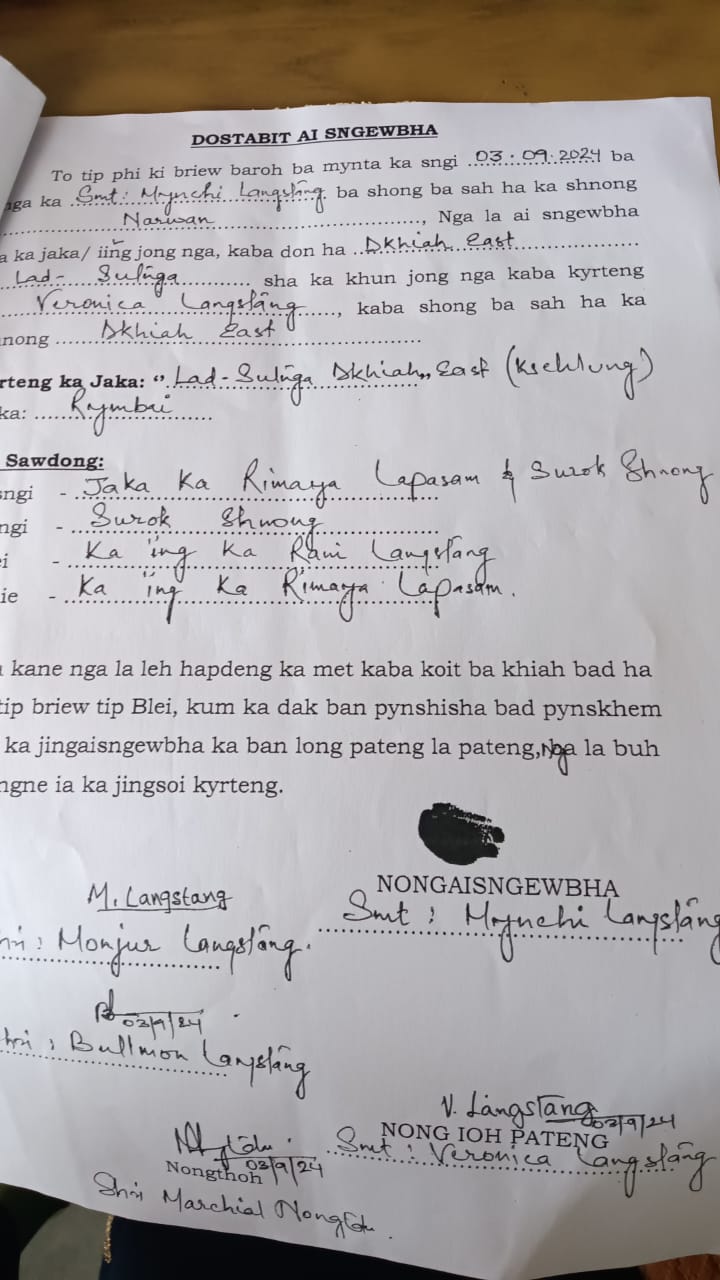 DOSTABIT AI SNGEWBHA
To tip phi ki briew baroh ba mynta ka sngi 03.09.2024 ba
nga ka Smt: Mynchi Langstāng ba shong ba sah ha ka shnong
Narwan, Nga la ai sngewbha
a ka jaka/ iing jong nga, kaba don ha Dkhiah East
Lad-Sutnga sha ka khun jong nga kaba kyrteng
Veronica Langstāng, kaba shong ba sah ha ka
nong Dkhiah East
rteng ka Jaka: “ Lad-Sutnga Dkhiah„ East
ka: Rymbai
Sawdong:
sngi - Jaka Ka Rimaya Lapasam & Surok Shnong
ngi - Surok Shnong
i - Ka ing Ka Rani Langstāng
ie - Ka ing Ka Rimaya Lapasam.
kane nga la leh hapdeng ka met kaba koit ba khiah bad ha
tip briew tip Blei, kum ka dak ban pynshisha bad pynskhem
ka jingaisngewbha ka ban long pateng la pateng, Nga la buh
ngne ia ka jingsoi kyrteng.
NONGAISNGEWBHA
M. Langstang
Smt : Mynchi Langstāng
hri : Monjur Langstāng.
03/9/24
hri : Bullmon Langstāng
V. Langstang 03/9/24
NONG IOH PATENG
Smt : Veronica Langstāng
03/9/24
Nongthoh
Shri Marchial Nongtdu.